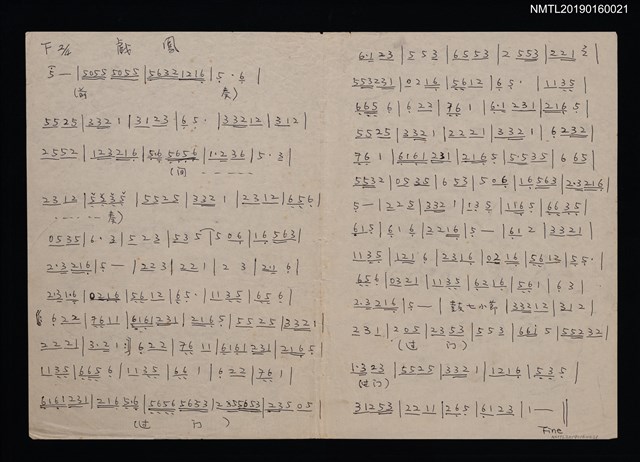 NMTL20190160021
下 2/4 戲鳳
5 — | 5055 5055 | 5632 1216 | 5 · 6 |
(前 奏)
5525 | 3321 | 3123 | 65 · | 33212 | 312 |
2552 | 123216 | 56 5656 | 1·236 | 5·3 |
(間
2312 | 5535 | 5525 | 3321 | 2312 | 656 |
奏)
0535 | 6·3 | 523 | 535 | 506 | 16563 |
2·3216 | 5 — | 223 | 221 | 23 | 2·1 6 |
2·316 | 0216 | 5612 | 65· | 1135 | 656 |
622 | 7611 | 6161231 | 2165 | 5525 | 3321 |
2221 | 3·21 | 622 | 7611 | 6161231 | 2165 |
1135 | 6656 | 1135 | 661 | 622 | 761 |
6161231 | 21656 | 5656 5653 | 2355653 | 23505 |
(过 门)
6·123 | 553 | 6553 | 2553 | 2212 |
553231 | 0216 | 5612 | 65· | 1135 |
6656 | 622 | 761 | 6·1231 | 2165 |
5525 | 3321 | 2221 | 3321 | 6232 |
761 | 6161231 | 2165 | 5·535 | 665 |
5532 | 0535 | 653 | 506 | 16563 | 2·3216 |
5 — | 225 | 3321 | 135 | 1165 | 6635 |
615 | 616 | 2216 | 5 — | 612 | 3321 |
1135 | 1216 | 2316 | 0216 | 5612 | 55· |
656 | 0321 | 1135 | 6216 | 561 | 63 |
2·3216 | 5 — | 鼓七小節 | 33212 | 312 |
231 | 205 | 2353 | 553 | 6615 | 55232 |
(过 门)
1·323 | 5525 | 3321 | 1216 | 535 |
(过门)
31253 | 2211 | 265 | 6123 | 1 — ||
Fine